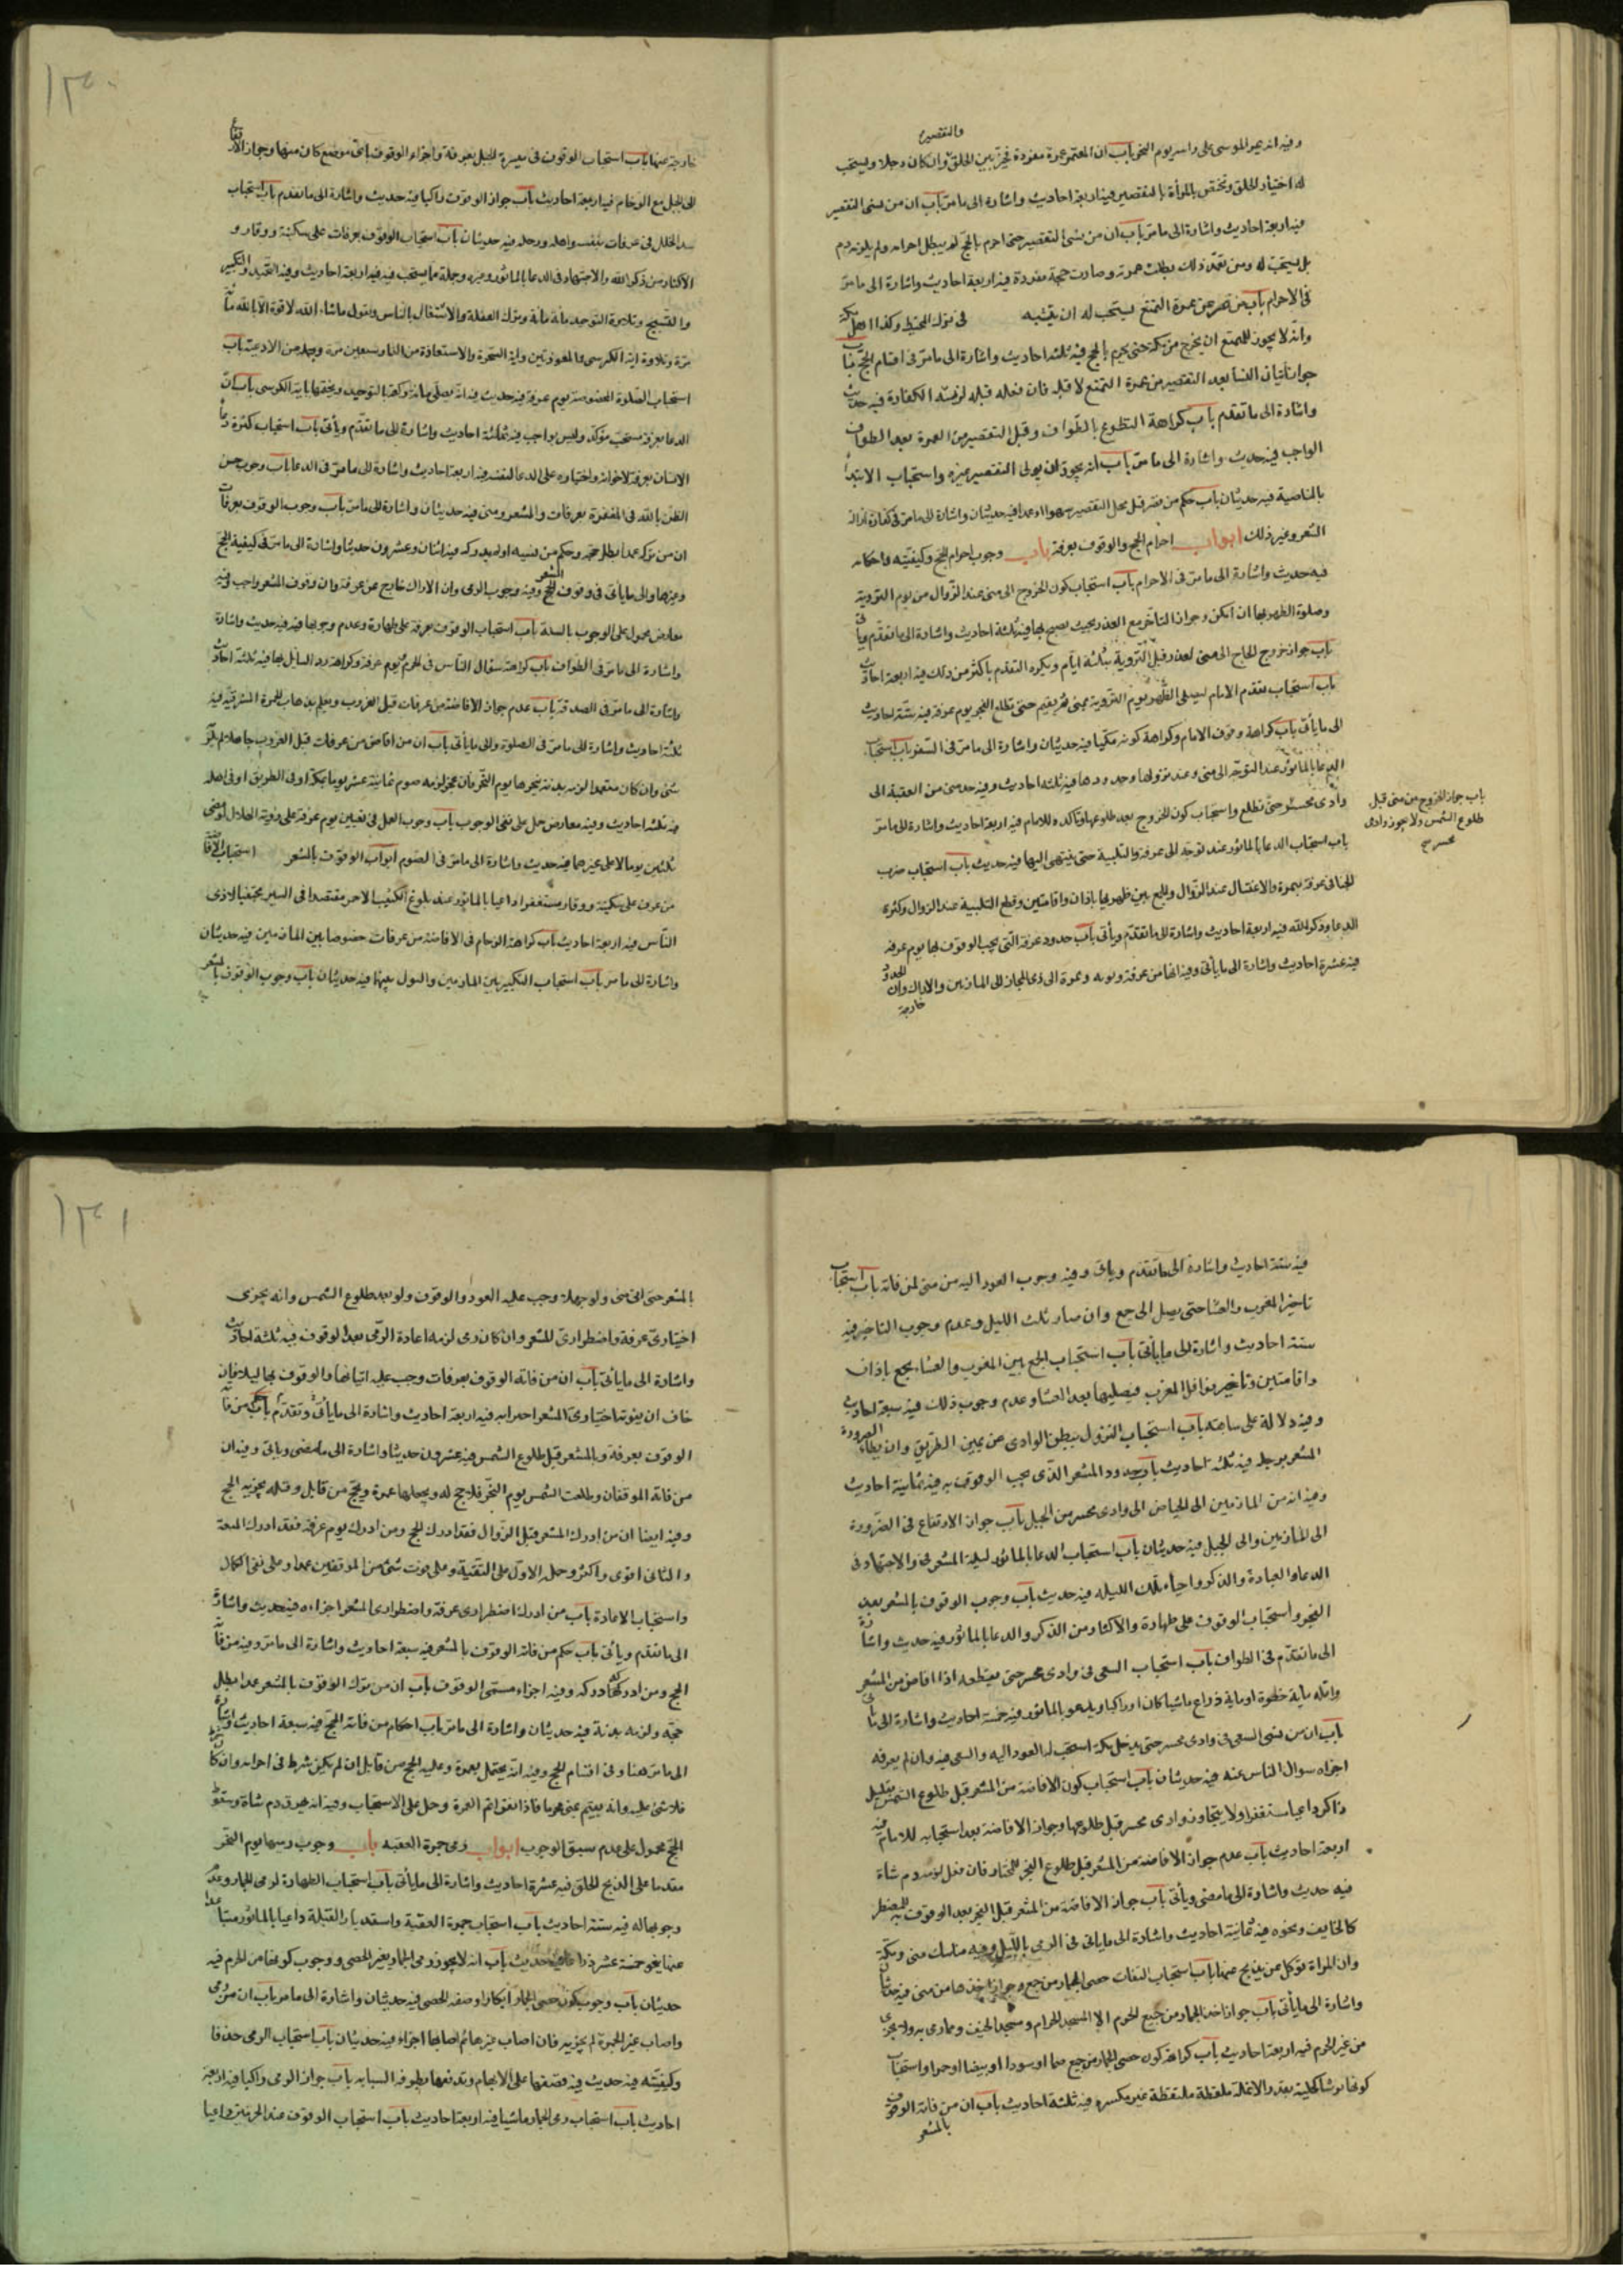 والتقصير
وفيه انه يمر الموسى على راسه يوم النحر باب ان المعتمر عمرة مفردة مخير بين الحلق وان كان رجلا ويستحب
له اختيار الحلق وتختص المرأة بالتقصير فيه اربعة احاديث واشارة الى ما مر باب ان من نسى التقصير
فيه اربعة احاديث واشارة الى ما مر باب ان من نسى التقصير حتى احرم بالحج لم يبطل احرامه ولم يلزمه دم
بل يستحب له ومن تعمد ذلك بطلت عمرته وصارت حجة مفردة فيه اربعة احاديث واشارة الى ما مر
فى الاحرام باب من قصر من عمرة التمتع يستحب له ان يتشبه فى ترك المخيط وكذا اهل مكة
وانه لا يجوز للمتمتع ان يخرج من مكة حتى يحرم بالحج فيه ثلثة احاديث واشارة الى ما مر فى اقسام الحج باب
جواز اتيان النسا بعد التقصير من عمرة التمتع لا قبله فان فعله قبله لزمته الكفارة فيه حديث
واشارة الى ما تقدم باب كراهة التطوع بالطواف وقبل التقصير من العمرة بعد الطواف
الواجب فيه حديث واشارة الى ما مر باب انه يجوز ان يولى التقصير غيره واستحباب الابتدأ
بالناصية فيه حديثان باب حكم من قبل محل التقصير سهوا او عمدا فيه حديثان واشارة الى ما مر فى كفارة ازالة
الشعر وغير ذلك ابواب احرام الحج والوقوف بعرفة باب وجوب احرام الحج وكيفيته واحكامه
فيه حديث واشارة الى ما مر فى الاحرام باب استحباب كون الخروج الى منى عند الزوال من يوم التروية
وصلوة الظهر بها ان امكن وجواز التأخر مع العذر بحيث يصبح بها فيه ثلثة احاديث واشارة الى ما تقدم ويأتى
باب جواز خروج الحاج الى منى لعذر قبل التروية بثلثة ايام ويكره التقدم باكثر من ذلك فيه اربعة احاديث
باب استحباب تقدم الامام ليصلى الظهر يوم التروية بمنى ثم يقيم حتى تطلع الفجر يوم عرفة فيه ستة احاديث
الى ما يأتى باب كراهة وقوف الامام وكراهة كونه مكيا فيه حديثان واشارة الى ما مر فى السفر باب استحباب
الدعا بالماثور عند التوجه الى منى وعند نزولها وحدودها فيه ثلثة احاديث وفيه حد منى من العقبة الى
وادى محسر حتى تطلع واستحباب كون الخروج بعد طلوعها وتاكده للامام فيه اربعة احاديث واشارة الى ما مر
باب جواز الخروج من منى قبل
طلوع الشمس ولا يجوز وادى
محسر صح
باب استحباب الدعا بالماثور عند توجه الى عرفة والتلبية حتى ينتهى اليها فيه حديث باب استحباب ضرب
الخبا فى عرفة بنمرة والاغتسال عند الزوال والجمع بين ظهريها باذان واقامتين وقطع التلبية عند الزوال وكثرة
الدعا وذكر الله فيه اربعة احاديث واشارة الى ما تقدم ويأتى باب حدود عرفة التى يجب الوقوف بها يوم عرفة
فيه عشرة احاديث واشارة الى ما يأتى وفيه انها من عرفة وثوية ونمرة الى ذى المجاز الى المازمين والاراك وان الحدود
خارجة
١٣٠
خارجة عنها باب استحباب الوقوف فى ميسرة الجبل بعرفة واجزاء الوقوف باى موضع كان منها وجواز الارتفاع
الى الجبل مع الزحام فيه اربعة احاديث باب جواز الوقوف راكبا فيه حديث واشارة الى ما تقدم باب استحباب
سد الخلل فى عرفات بنفسه واهله ورحله فيه حديثان باب استحباب الوقوف بعرفات على سكينة ووقار و
الاكثار من ذكر الله والاجتهاد فى الدعا بالماثور وغيره وجملة ما يستحب فيه فيه اربعة احاديث وفيه التحميد والتكبير
والتسبيح وتلاوة التوحيد مائة مائة وترك الغفلة والاشتغال بالناس وتقول ماشاء الله لا قوة الا بالله مائة
مرة وتلاوة اية الكرسى والمعوذتين واية السخرة والاستعاذة من النار سبعين مرة وجملة من الادعية باب
استحباب الصلوة المخصوصة يوم عرفة فيه حديث
الدعا بعرفة مستحب مؤكد وليس بواجب فيه ثمانية احاديث واشارة الى ما تقدم ويأتى باب استحباب كثرة دعأ
الانسان بعرفة لاخوانه واختياره على الدعا لنفسه فيه اربعة احاديث واشارة الى ما مر فى الدعا باب وجوب حسن
الظن بالله فى المغفرة بعرفات والمشعر ومنى فيه حديثان واشارة الى ما مر باب وجوب الوقوف بعرفات
ان من تركه عمدا بطل حجه وحكم من نسيه او لم يدركه فيه اثنان وعشرون حديثا واشارة الى ما مر فى كيفية الحج
وغيرها والى ما يأتى فى وقوف المشعر وفيه وجوب الرمى وان الاراك خارج عن عرفة وان وقوف المشعر واجب وفيه
معارض محمول على الوجوب بالسنة باب استحباب الوقوف بعرفة على طهارة وعدم وجوبها فيه فيه حديث واشارة
واشارة الى ما مر فى الطواف باب كراهة سؤال الناس فى الحرم يوم عرفة وكراهة رد السائل بها فيه ثلثة احاديث
واشارة الى ما مر فى الصدقة باب عدم جواز الافاضة من عرفات قبل الغروب ويعلم بذهاب الحمرة المشرقية فيه
ثلثة احاديث واشارة الى ما مر فى الصلوة والى ما يأتى باب ان من افاض من عرفات قبل الغروب جاهلا لم يلزمه
شئ وان كان متعمدا لزمه بدنة ينحرها يوم النحر فان عجز لزمه صوم ثمانية عشر يوما بمكة او فى الطريق او فى اهله
فيه ثلثة احاديث وفيه معارض حمل على نفى الوجوب باب وجوب العمل فى تعيين يوم عرفة على رؤية الهلال او مضى
ثلثين يوما لا على غيرهما فيه حديث واشارة الى ما مر فى الصوم ابواب الوقوف بالمشعر استحباب الافاضة
من عرفة على سكينة ووقار مستغفرا داعيا بالماثور عند بلوغ الكثيب الاحمر مقتصدا فى السير مجتنبا لاذى
الناس فيه اربعة احاديث باب كراهة الزحام فى الافاضة من عرفات خصوصا بين المازمين فيه حديثان
واشارة الى ما مر باب استحباب التكبير بين المازمين والنزول بينهما فيه حديثان باب وجوب الوقوف بالمشعر
فيه ستة احاديث واشارة الى ما تقدم وياتى وفيه وجوب العود اليه من منى لمن فاته باب استحباب
تاخير المغرب والعشا حتى يصل الى جمع وان صار ثلث الليل وعدم وجوب التاخير فيه
ستة احاديث واشارة الى ما يأتى باب استحباب الجمع بين المغرب والعشاء بجمع باذان
واقامتين وتأخير نوافل المغرب فيصليها بعد العشا وعدم وجوب ذلك فيه سبعة احاديث
وفيه دلالة على سابقه باب استحباب النزول ببطن الوادى عن يمين الطريق وان يطأ الصرورة
المشعر برجله فيه ثلثة احاديث باب حدود المشعر الذى يجب الوقوف به فيه ثمانية احاديث
وفيه انه من المازمين الى الحياض الى وادى محسر من الجبل باب جواز الارتفاع فى الضرورة
الى المازمين والى الجبل فيه حديثان باب استحباب الدعا بالماثور ليلة المشعر فى والاجتهاد فى
الدعا والعبادة والذكر واحياء تلك الليلة فيه حديث باب وجوب الوقوف بالمشعر بعد
الفجر واستحباب الوقوف على طهارة والاكثار من الذكر والدعا بالماثور فيه حديث واشارة
الى ما تقدم فى الطواف باب استحباب السعى فى وادى محسر حتى يقطعه اذا افاض من المشعر
واقله مأية خطوة او مأية ذراع ماشيا كان او راكبا ويدعو بالماثور فيه خمسة احاديث واشارة الى ما يأتى
باب ان من نسى السعى فى وادى محسر حتى يدخل مكة استحب له العود اليه والسعى فيه وان لم يعرفه
اجزاه سوال الناس عنه فيه حديثان باب استحباب كون الافاضة من المشعر قبل طلوع الشمس بقليل
ذاكرا داعيا مستغفرا ولا يتجاوز وادى محسر قبل طلوعها وجواز الافاضة بعد استحبابه للامام فيه
اربعة احاديث باب عدم جواز الافاضة من المشعر قبل طلوع الفجر للمختار فان فعل لزمه دم شاة
فيه حديث واشارة الى ما مضى ويأتى باب جواز الافاضة من المشعر قبل الفجر بعد الوقوف به للمضطر
كالخايف ونحوه فيه ثمانية احاديث واشارة الى ما ياتى فى الرمى بالليل وفيه مناسك منى ومكة
وان المراة توكل من يذبح عنها باب استحباب التقاط حصى الجمار من جمع وجواز اخذها من منى فيه حديثان
واشارة الى ما يأتى باب جواز اخذ الجمار من جميع الحرم الا المسجد الحرام ومسجد الخيف وما رمى به ولا يجزى
من غير الحرم فيه اربعة احاديث باب كراهة كون حصى الجمار من جمع صما او سودا او بيضا او حمرا واستحباب
كونها برشا كحلية بقدر الانملة منقطة ملتقطة غير مكسرة فيه ثلثة احاديث باب ان من فاته الوقوف
بالمشعر
١٣١
بالمشعر حتى اتى منى ولو جهلا وجب عليه العود والوقوف ولو بعد طلوع الشمس وانه يجزى
اختيارى عرفة واضطرارى المشعر وان كان رمى لزمه اعادة الرمى بعد الوقوف فيه ثلثة احاديث
واشارة الى ما يأتى باب ان من فاته الوقوف بعرفات وجب عليه اتيانها والوقوف بها ليلا فان
خاف ان يفوته اختيارى المشعر اجزأه فيه اربعة احاديث واشارة الى ما يأتى وتقدم باب حكم من فاته
الوقوف بعرفة وبالمشعر قبل طلوع الشمس فيه عشرون حديثا واشارة الى ما مضى وياتى وفيه ان
من فاته الموقفان وطلعت الشمس يوم النحر فلا حج له ويجعلها عمرة ويحج من قابل وقيل يجزيه الحج
وفيه ايضا ان من ادرك المشعر قبل الزوال فقد ادرك الحج ومن ادرك يوم عرفة فقد ادرك المتعة
والثانى اقوى واكثر وحمل الاول على التقية وعلى فوت شئ من الموقفين عمدا وعلى نفى اكمال
واستحباب الاعادة باب من ادرك اضطرارى عرفة واضطرارى المشعر اجزاه فيه حديث واشارة
الى ما تقدم ويأتى باب حكم من فاته الوقوف بالمشعر فيه سبعة احاديث واشارة الى ما مر وفيه من فاته
الحج ومن ادركه وفيه اجزاء مسمى الوقوف باب ان من ترك الوقوف بالمشعر عمدا بطل
حجه ولزمه بدنة فيه حديثان واشارة الى ما مر باب احكام من فاته الحج فيه سبعة احاديث واشارة
الى ما مر هنا وفى اقسام الحج وفيه انه يحتمل بعمرة وعليه الحج من قابل ان لم يكن شرط فى احرامه وان كان
فلا شئ عليه وانه يقيم بمنى محرما فاذا نفر اتم العمرة وحمل على الاستحباب وفيه انه يهرق دم شاة وسقوط
الحج محمول على عدم سبق الوجوب ابواب رمى جمرة العقبة باب وجوب رميها يوم النحر
مقدما على الذبح والحلق فيه عشرة احاديث واشارة الى ما يأتى باب استحباب الطهارة لرمى الجمار وعدم
وجوبها له فيه ستة احاديث باب استحباب جمرة العقبة واستدبار القبلة داعيا بالماثور متباعدا
عنها نحو خمسة عشر ذراعا فيه حديث باب انه لا يجوز رمى الجمار بغير الحصى ووجوب كونها من الحرم فيه
حديثان باب وجوب كون حصى الجمار ابكارا وصفة الحصى فيه حديثان واشارة الى ما مر باب ان من رمى
واصاب غير الجمرة لم يجزيه فان اصاب غيرها ثم اصابها اجزاه فيه حديثان باب استحباب الرمى خذفا
وكيفيته فيه حديث فيه فتضعها على الابهام وتدفعها بظفر السبابه باب جواز الرمى راكبا فيه اربعة
احاديث باب استحباب رمى الجمار ماشيا فيه اربعة احاديث باب استحباب الوقوف عند الجمرتين داعيا